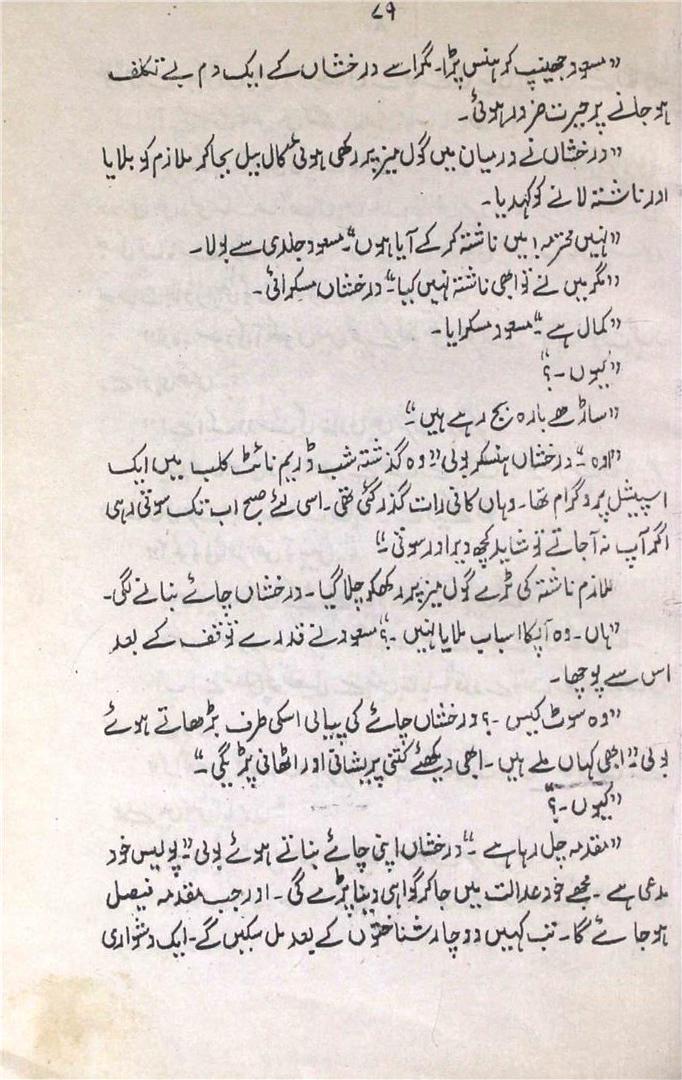 ۷۹
"مسعود جھینپ کر ہنس پڑا۔ مگر اسے درخشاں کے ایک دم بے تکلف
ہو جانے پر حیرت ضرور ہوئی۔
"درخشاں نے درمیان میں گول میز پر رکھی ہوئی کال بیل بجا کر ملازم کو بلایا
اور ناشتہ لانے کو کہدیا۔
"نہیں محترمہ! میں ناشتہ کر کے آیا ہوں" مسعود جلدی سے بولا۔
"مگر میں نے تو ابھی ناشتہ نہیں کیا"۔ درخشاں مسکرائی۔
"کمال ہے"۔ مسعود مسکرایا۔
"کیوں۔؟"
"ساڑھے بارہ بج رہے ہیں"۔
"اوہ"۔ درخشاں ہنسکر بولی "وہ گذشتہ شب ڈریم نائٹ کلب میں ایک
اسپیشل پروگرام تھا۔ وہاں کافی رات گذر گئی تھی۔ اسی لئے صبح اب تک سوتی رہی
اگر آپ نہ آجاتے تو شاید کچھ دیر اور سوتی۔"
ملازم ناشتہ کی ٹرے گول میز پر رکھکر چلا گیا۔ درخشاں چائے بنانے لگی۔
"ہاں۔ وہ آپکا اسباب ملا یا نہیں۔؟" مسعود نے قدرے توقف کے بعد
اس سے پوچھا۔
"وہ سوٹ کیس۔؟ درخشاں چائے کی پیالی اسکی طرف بڑھاتے ہوئے
بولی "ابھی کہاں ملے ہیں۔ ابھی دیکھئے کتنی پریشانی اور اٹھانی پڑیگی۔"
"کیوں۔؟"
"مقدمہ چل رہا ہے۔" درخشاں اپنی چائے بناتے ہوئے بولی "پولیس خود
مدعی ہے۔ مجھے خود عدالت میں جا کر گواہی دینا پڑے گی۔ اور جب مقدمہ فیصل
ہو جائے گا۔ تب کہیں دو چار شناختوں کے بعد مل سکیں گے۔ ایک دشواری